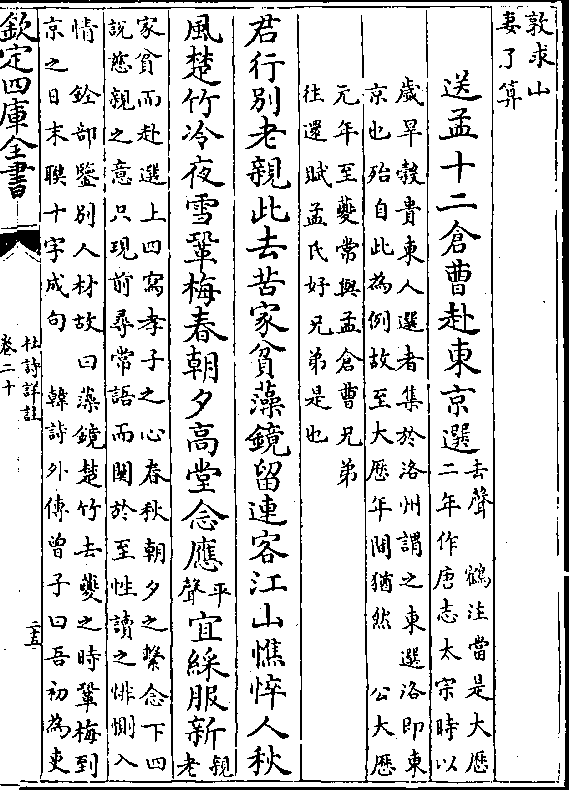 敦求山
妻了算
送孟十二倉曹赴東京選
去聲 鶴注當是大厯
二年作唐志太宗時以
歲旱穀貴東人選者集於洛州謂之東選洛即東
京也殆自此為例故至大厯年間猶然 公大厯
元年至夔常與孟倉曹兄弟
往還賦孟氏好兄弟是也
君行別老親此去苦家貧藻鏡留連客江山憔悴人秋
風楚竹冷夜雪鞏梅春朝夕高堂念應平聲宜綵服新
親
老
家貧而赴選上四寫孝子之心春秋朝夕之繫念下四
說慈親之意只現前尋常語而關於至性讀之悱惻入
情 銓部鑒別人材故曰藻鏡楚竹去夔之時鞏梅到
京之日末聯十字成句 韓詩外傳曾子曰吾初為吏
欽定四庫全書
杜詩詳註
卷二十